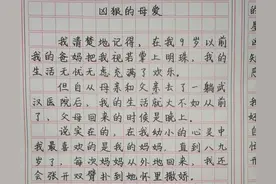 凶狠的母爱
我清楚地记得，在我9岁以前
我的爸妈把我视若掌上明珠，我的
生活无忧无虑充满了欢乐。
但自从母亲和父亲去了一趟武
汉医院后，我的生活就大不如从前
了，父母回来的时候是晚上。
说实在的，在我幼小的心灵中
我最喜欢的是我的妈妈，直到八九
岁了，每次妈妈从外地回来，我还
会张开双臂扑到她怀里撒娇。